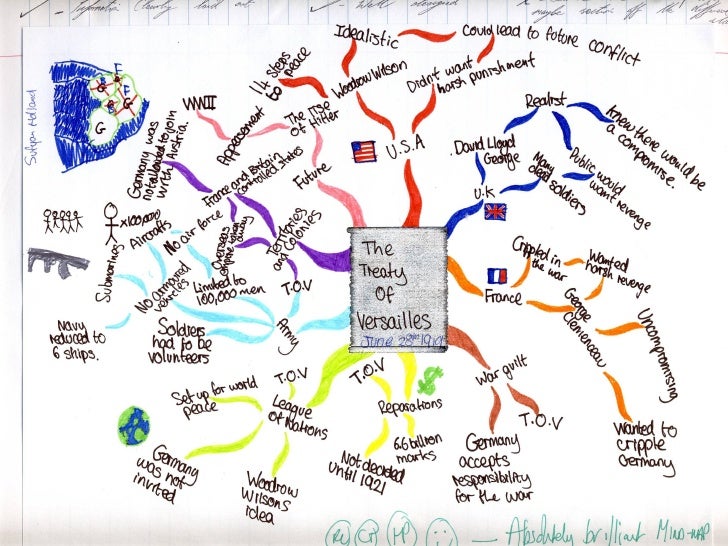 Information Clearly laid out
Well
maybe section off the
Sutejan Holland
G
The
Treaty
Of
Versailles
June 28th 1919
U.S.A
Woodrow Wilson
Idealistic
14 steps
to peace
Didn't want
harsh punishment
Could lead to future conflict
U.K
David Lloyd
George
Realist
Knew there would be
a compromise.
Public would
want revenge
Many
dead soldiers
France
Crippled in
the war
George
Clemenceau
Wanted
harsh revenge
Uncompromising
Wanted to
cripple
Germany
War guilt
T.O.V
Germany
accepts
responsibility
for the war
Reparations
T.O.V
$
6.6 billion
marks
Not decided
until 1921
League
of Nations
T.O.V
Set up for world
peace
Germany
was not
invited
Woodrow
Wilsons
idea
Army
T.O.V
Limited to
100,000 men
Soldiers
had to be
volunteers
No armoured
vehicles
No air force
Aircrafts
Submarines
x100,000
Navy
reduced to
6 ships.
Territories
and Colonies
Overseas
empire taken
away
France and Britain
controlled states
Germany was
not allowed to join
with Austria.
Future
The rise
of Hitler
Appeasement
WWII
Absolutely brilliant MIND-MAP